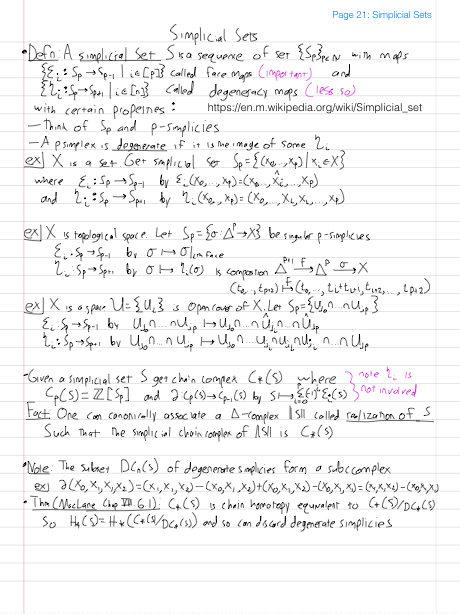 Page 21: Simplicial Sets
Simplicial Sets
• Defn: A simplicial Set S is a sequence of set {S_p}_{p∈N} with maps
{Σ_i : S_p → S_{p-1} | i∈[p]} called face maps (important) and
{η_i : S_p → S_{p+1} | i∈[n]} called degeneracy maps (less so)
with certain properties: https://en.m.wikipedia.org/wiki/Simplicial_set
– Think of S_p and p-simplicies
– A p simplex is degenerate if it is the image of some η_i
ex| X is a set. Get simplicial set S_p = {(x_0,...,x_p) | x_i∈X}
where Σ_i : S_p → S_{p-1} by Σ_i(x_0,...,x_p) = (x_0,...,x̂_i,...,x_p)
and η_i : S_p → S_{p+1} by η_i(x_0,...,x_p) = (x_0,...,x_i,x_i,...,x_p)
ex| X is topological space. Let S_p = {σ: Δ^p → X} be singular p-simplicies
Σ_i : S_p → S_{p-1} by σ ↦ σ|_{ith face}
η_i : S_p → S_{p+1} by σ ↦ η_i(σ) is compostion Δ^{p+1} →^f Δ^p →^σ X
(t_0,...,t_{p+2}) ↦ (t_0,...,t_i+t_{i+1},t_{i+2},...,t_{p+2})
ex| X is a space U = {U_i} is open cover of X. Let S_p = {U_{j_0}∩...∩U_{j_p}}
Σ_i : S_p → S_{p-1} by U_{j_0}∩...∩U_{j_p} ↦ U_{j_0}∩...∩Û_{j_i}∩...∩U_{j_p}
η_i : S_p → S_{p+1} by U_{j_0}∩...∩U_{j_p} ↦ U_{j_0}∩...∩U_{j_i}∩U_{j_i}∩...∩U_{j_p}
– Given a simplicial set S get chain complex C_*(S) where } note η_i is
C_p(S) = Z[S_p] and ∂: C_p(S) → C_{p-1}(S) by S ↦ Σ_{i=0}^p (-1)^i Σ_i(S) } not involved
Fact: One can canonically associate a Δ-complex ||S|| called realization of S
Such that the simplicial chain complex of ||S|| is C_*(S)
• Note: The subset DC_n(S) of degenerate simplicies form a subcomplex
ex| ∂(x_0,x_1,x_1,x_2) = (x_1,x_1,x_2) - (x_0,x_1,x_2) + (x_0,x_1,x_2) - (x_0,x_1,x_1) = (x_1,x_1,x_2) - (x_0,x_1,x_1)
• Thm (MacLane Chap VIII.6.1): C_*(S) is chain homotopy equivalent to C_*(S)/DC_*(S)
So H_*(S) = H_*(C_*(S)/DC_*(S)) and so can discard degenerate simplicies